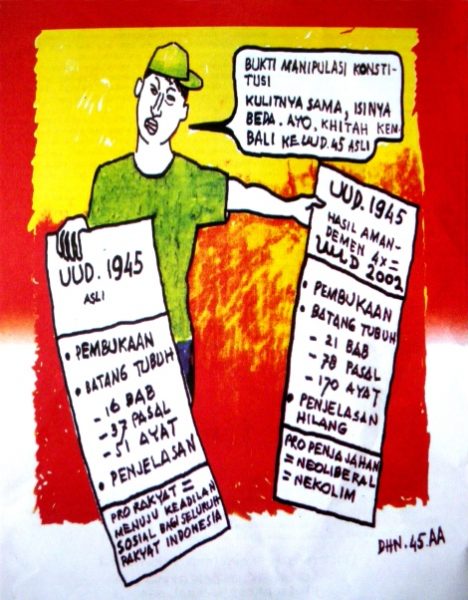 BUKTI MANIPULASI KONSTI-
TUSI
KULITNYA SAMA, ISINYA
BEDA. AYO, KHITAH KEM-
BALI KE UUD.45 ASLI
UUD. 1945
ASLI
• PEMBUKAAN
• BATANG TUBUH
- 16 BAB
- 37 PASAL
- 51 AYAT
• PENJELASAN
PRO RAKYAT =
MENUJU KEADILAN
SOSIAL BAGI SELURUH
RAKYAT INDONESIA
UUD. 1945
HASIL AMAN-
DEMEN 4X =
UUD 2002
• PEMBUKAAN
• BATANG TUBUH
- 21 BAB
- 78 PASAL
- 170 AYAT
• PENJELASAN
HILANG
PRO PENJAJAHAN
= NEOLIBERAL
= NEKOLIM
DHN.45.AA